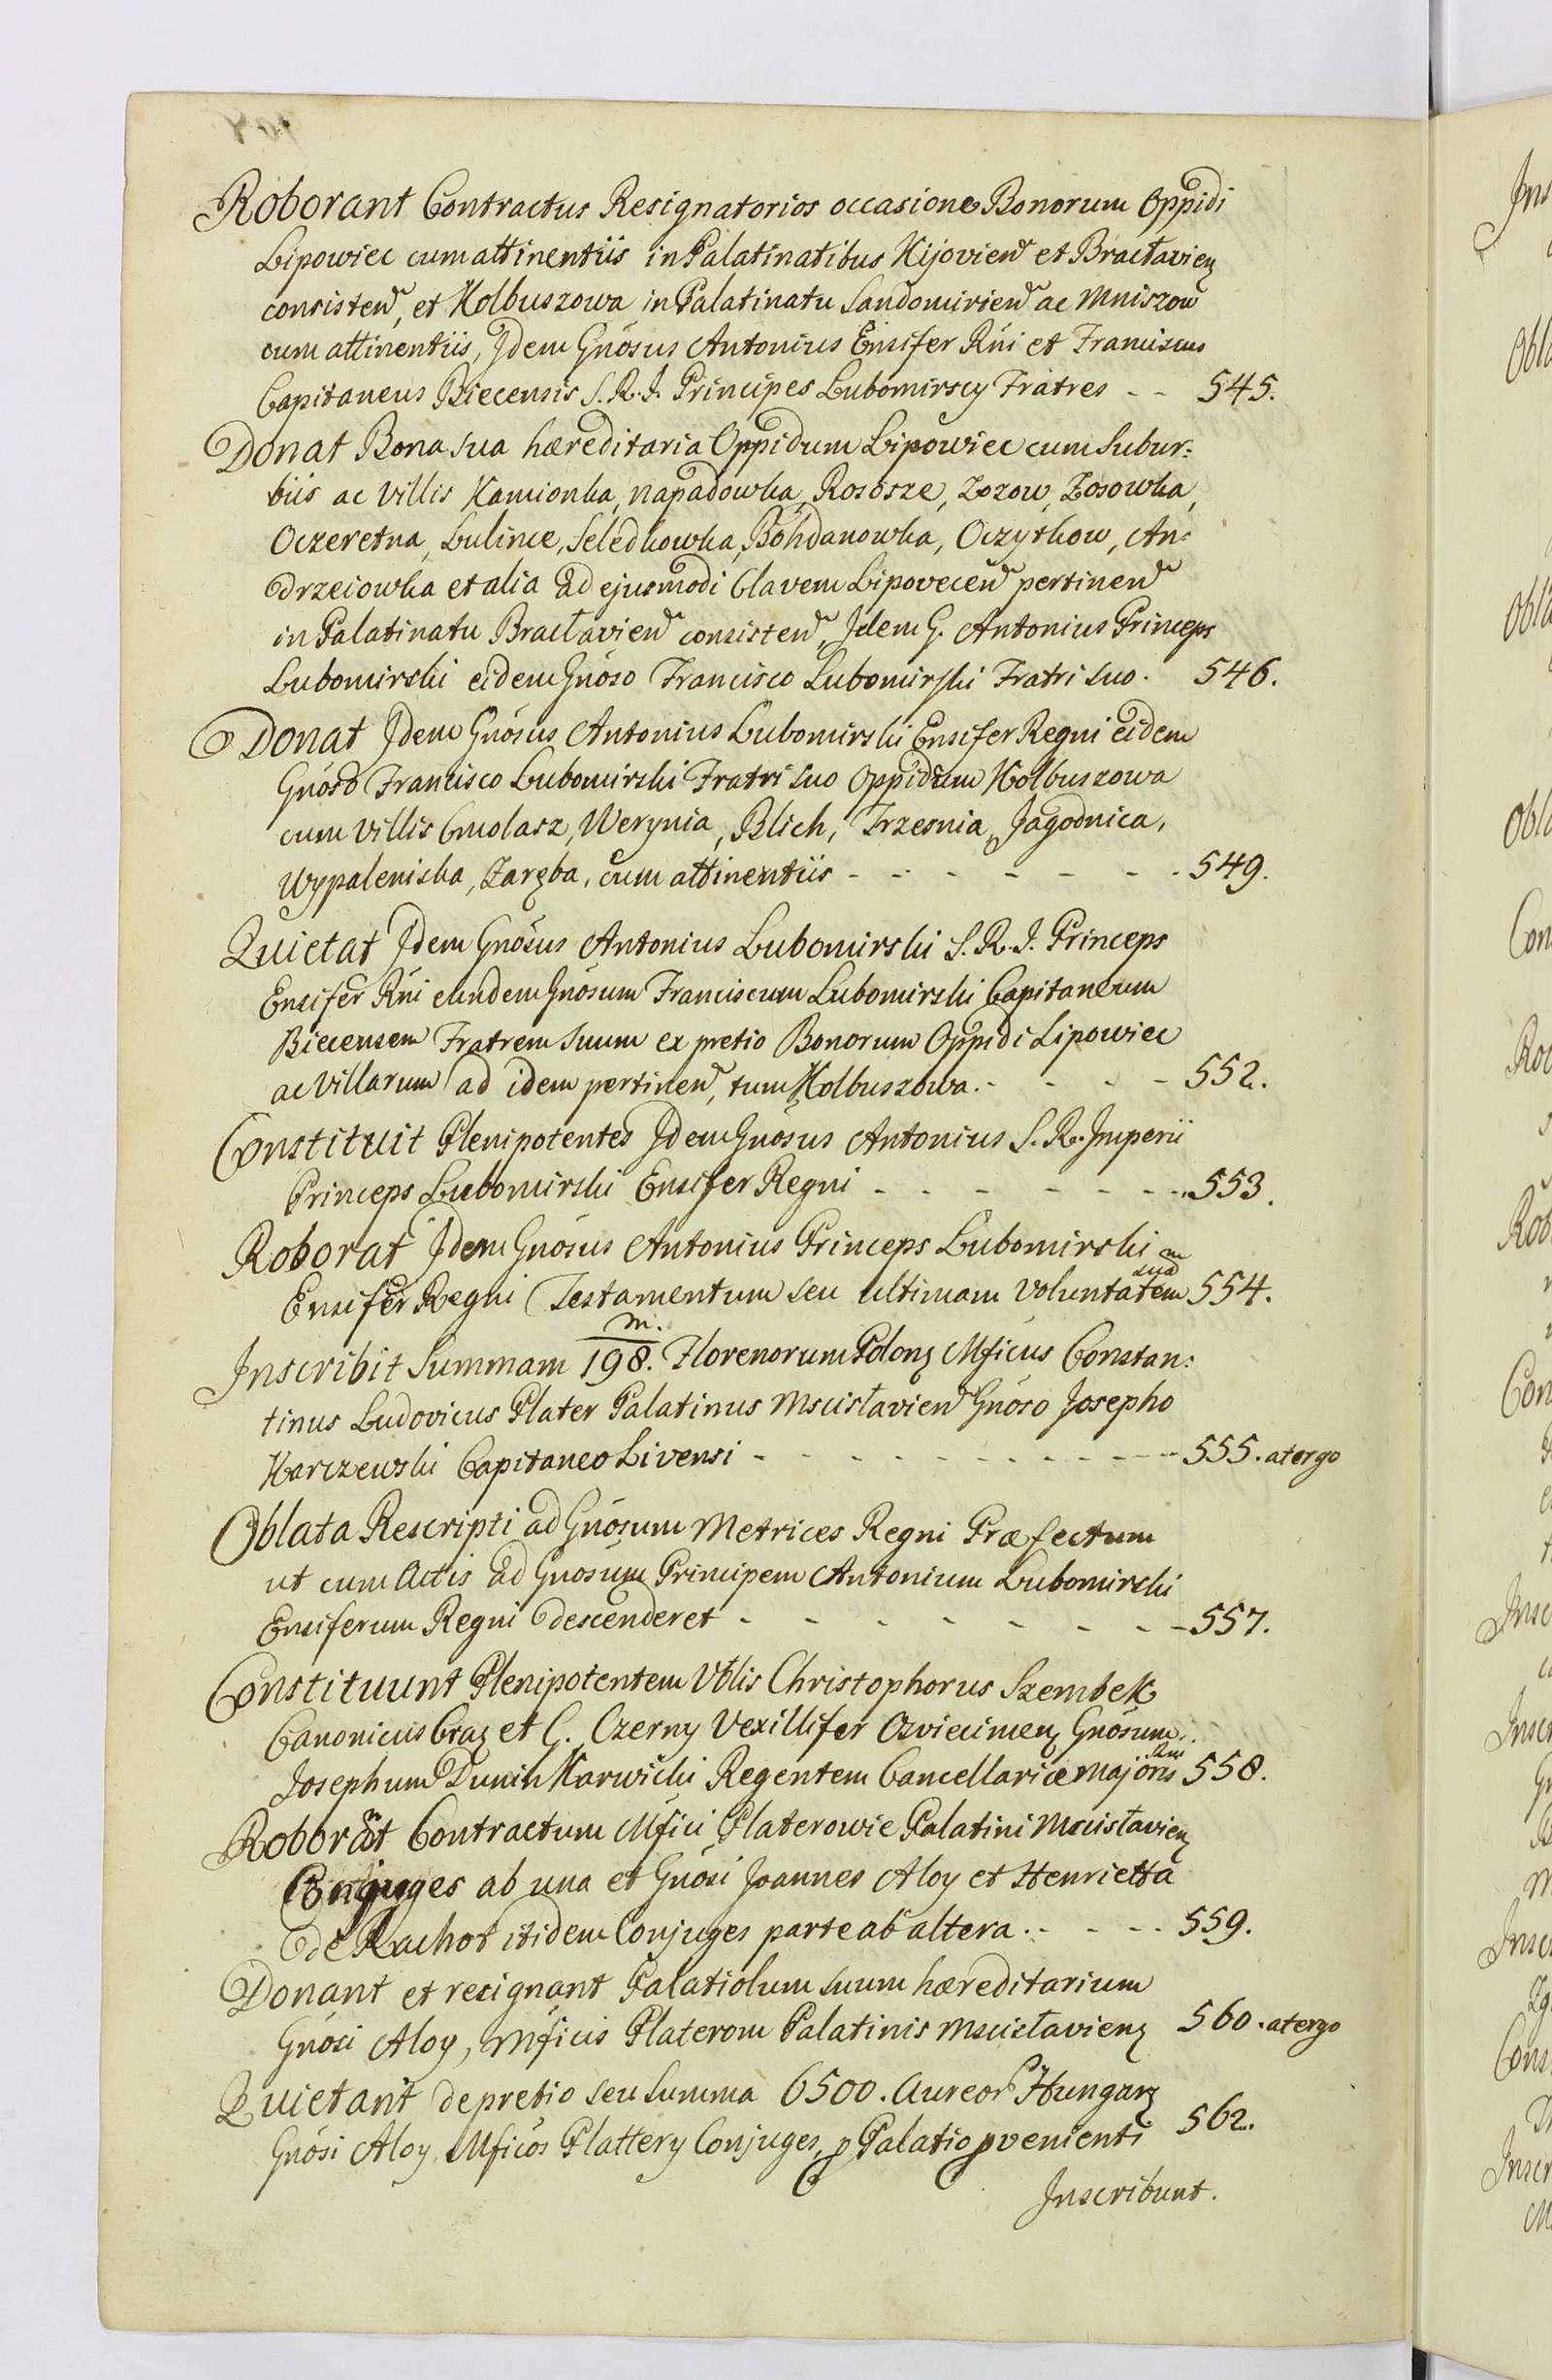 Roborant Contractus Resignatorios occasione Bonorum Oppidi
Lipowiec cum attinentiis in Palatinatibus Kijovien et Bractavien
consisten, et Kolbuszowa in Palatinatu Sandomirien ac Mniszow
cum attinentiis, Idem Gnosus Antonius Ensifer Rni et Franciscus
Capitaneus Biecensis S. R. I. Principes Lubomirscy Fratres - - 545.
Donat Bona sua hæreditaria Oppidum Lipowiec cum Subur:
biis ac Villis Kamionka, Napadowka, Rososze, Zozow, Zosowka,
Oczeretna, Lulince, Seledkowka, Bohdanowka, Oczytkow, An:
drzeiowka et alia ad ejusmodi Clavem Lipovecen pertinen
in Palatinatu Bractavien consisten, Idem G. Antonius Princeps
Lubomirski eidem Gnoso Francisco Lubomirski Fratri suo. 546.
Donat Idem Gnosus Antonius Lubomirski Ensifer Regni eidem
Gnoso Francisco Lubomirski Fratri suo Oppidum Kolbuszowa
cum Villis Cmolasz, Werynia, Blich, Trzesnia, Jagodnica,
Wypaleniska, Zaręba, cum attinentiis - - - - - - - 549.
Quietat Idem Gnosus Antonius Lubomirski S. R. I. Princeps
Ensifer Rni eundem Gnosum Franciscum Lubomirski Capitaneum
Biecensem Fratrem Suum ex pretio Bonorum Oppidi Lipowiec
ac Villarum ad idem pertinen, tum Kolbuszowa. - - - - 552.
Constituit Plenipotentes Idem Gnosus Antonius S. R. Imperii
Princeps Lubomirski Ensifer Regni - - - - - - - 553.
Roborat Idem Gnosus Antonius Princeps Lubomirski
Ensifer Regni Testamentum seu ultimam voluntatem suam 554.
Inscribit Summam 198.m. Florenorum Polon Mficus Constan:
tinus Ludovicus Plater Palatinus Mscislavien Gnoso Josepho
Karczewski Capitaneo Livensi - - - - - - - - - - 555. atergo
Oblata Rescripti ad Gnosum Metrices Regni Præfectum
ut cum Actis ad Gnosum Principem Antonium Lubomirski
Ensiferum Regni descenderet - - - - - - - 557.
Constituunt Plenipotentem Vblis Christophorus Szembek
Canonicus Crac et G. Czerny Vexillifer Osviecimen Gnosum
Josephum Dunin Karwicki Regentem Cancellariæ Majoris Rni 558.
Roborant Contractum Mfici Platerowie Palatini Mscislavien
Conjuges ab una et Gnosi Joannes Aloy et Henrietta
de Rachot itidem Conjuges parte ab altera. - - - - 559.
Donant et resignant Palatiolum suum hæreditarium
Gnosi Aloy, Mficis Platerom Palatinis Mscislavien 560. atergo
Quietant de pretio seu Summa 6500. Aureor Hungar
Gnosi Aloy Mficos Plattery Conjuges, p Palatio pvenienti 562.
Inscribunt.